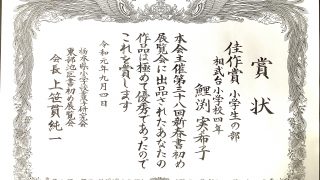 賞状
佳作賞 小学生の部
相武台小学校四年
鯉渕 実希子
本会主催第三十八回新春書初め
展覧会に出品されたあなたの
作品は極めて優秀であったので
これを賞します
令和元年九月四日
栃木県小学校書写研究会
東部地区書き初め展覧会
会長 上笹貫純一